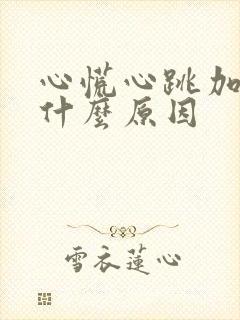 心慌心跳加
什麼原因
雪衣蓮心